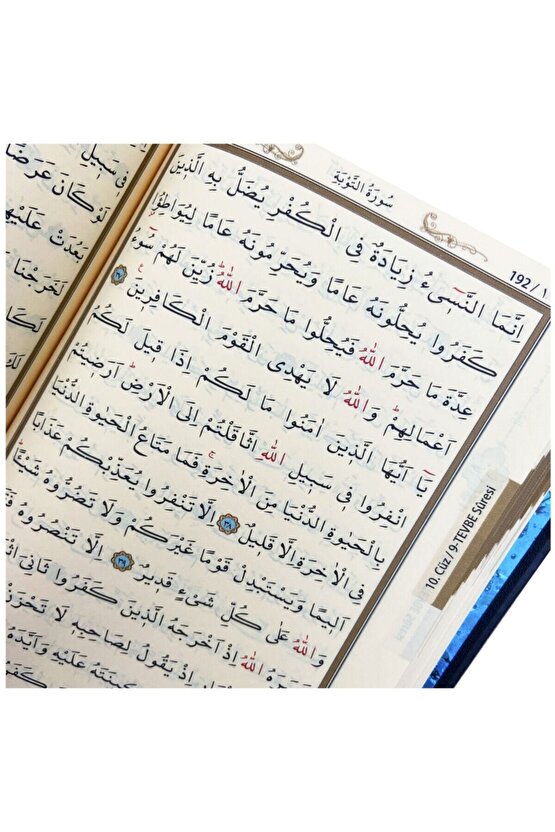 سورة التوبة
192 / 1
اِنَّمَا النَّسٖٓيءُ زِيَادَةٌ فِي الْكُفْرِ يُضَلُّ بِهِ الَّذٖينَ
كَفَرُوا يُحِلُّونَهُ عَامًا وَيُحَرِّمُونَهُ عَامًا لِيُوَاطِؤُ۫ا
عِدَّةَ مَا حَرَّمَ اللّٰهُ فَيُحِلُّوا مَا حَرَّمَ اللّٰهُ زُيِّنَ لَهُمْ سُٓوءُ
اَعْمَالِهِمْ وَاللّٰهُ لَا يَهْدِي الْقَوْمَ الْكَافِرٖينَ ٣٧
يَٓا اَيُّهَا الَّذٖينَ اٰمَنُوا مَا لَكُمْ اِذَا قٖيلَ لَكُمُ
انْفِرُوا فٖي سَبٖيلِ اللّٰهِ اثَّاقَلْتُمْ اِلَى الْاَرْضِ اَرَضٖيتُمْ
بِالْحَيٰوةِ الدُّنْيَا مِنَ الْاٰخِرَةِ فَمَا مَتَاعُ الْحَيٰوةِ الدُّنْيَا
فِي الْاٰخِرَةِ اِلَّا قَلٖيلٌ ٣٨ اِلَّا تَنْفِرُوا يُعَذِّبْكُمْ عَذَابًا
اَلٖيمًا وَيَسْتَبْدِلْ قَوْمًا غَيْرَكُمْ وَلَا تَضُرُّوهُ شَيْـًٔا
وَاللّٰهُ عَلٰى كُلِّ شَيْءٍ قَدٖيرٌ ٣٩ اِلَّا تَنْصُرُوهُ
اللّٰهُ اِذْ اَخْرَجَهُ الَّذٖينَ كَفَرُوا ثَانِيَ
اِذْ يَقُولُ لِصَاحِبِهٖ لَا تَحْزَنْ
عَلَيْهِ وَاَيَّدَهُ
10. Cüz / 9-TEVBE Sûresi
فٖي سَبٖيلِ
لَوْ كَانَ عَرَضًا
بَعُدَتْ عَلَيْهِمُ
لَخَرَجْنَا